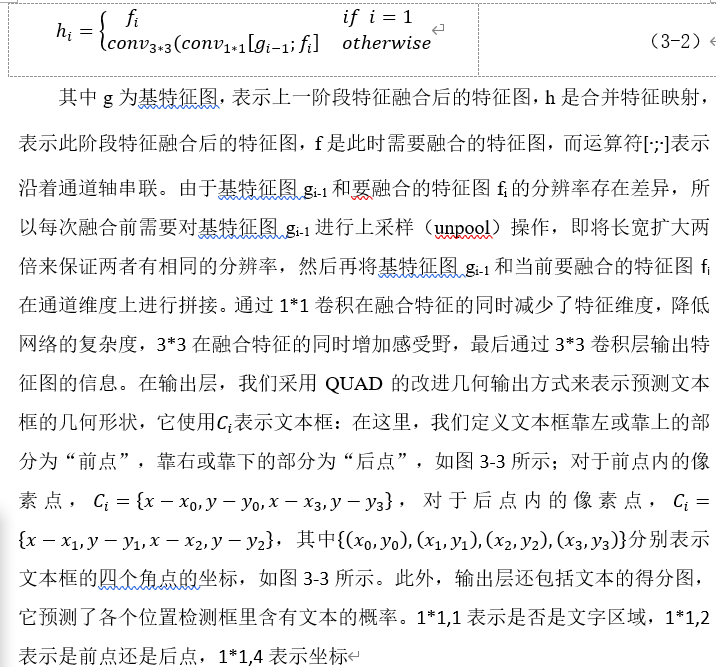 h_i = { f_i if i = 1
conv_{3*3}(conv_{1*1}[g_{i−1}; f_i] otherwise
（3-2）
其中 g 为基特征图，表示上一阶段特征融合后的特征图，h 是合并特征映射，
表示此阶段特征融合后的特征图，f 是此时需要融合的特征图，而运算符[·;·]表示
沿着通道轴串联。由于基特征图 g_{i-1} 和要融合的特征图 f_i 的分辨率存在差异，所
以每次融合前需要对基特征图 g_{i-1} 进行上采样（unpool）操作，即将长宽扩大两
倍来保证两者有相同的分辨率，然后再将基特征图 g_{i-1} 和当前要融合的特征图 f_i
在通道维度上进行拼接。通过 1*1 卷积在融合特征的同时减少了特征维度，降低
网络的复杂度，3*3 在融合特征的同时增加感受野，最后通过 3*3 卷积层输出特
征图的信息。在输出层，我们采用 QUAD 的改进几何输出方式来表示预测文本
框的几何形状，它使用C_i表示文本框：在这里，我们定义文本框靠左或靠上的部
分为“前点”，靠右或靠下的部分为“后点”，如图 3-3 所示；对于前点内的像
素点，C_i = {x − x_0, y − y_0, x − x_3, y − y_3}，对于后点内的像素点，C_i =
{x − x_1, y − y_1, x − x_2, y − y_2}，其中{(x_0, y_0), (x_1, y_1), (x_2, y_2), (x_3, y_3)}分别表示
文本框的四个角点的坐标，如图 3-3 所示。此外，输出层还包括文本的得分图，
它预测了各个位置检测框里含有文本的概率。1*1,1 表示是否是文字区域，1*1,2
表示是前点还是后点，1*1,4 表示坐标